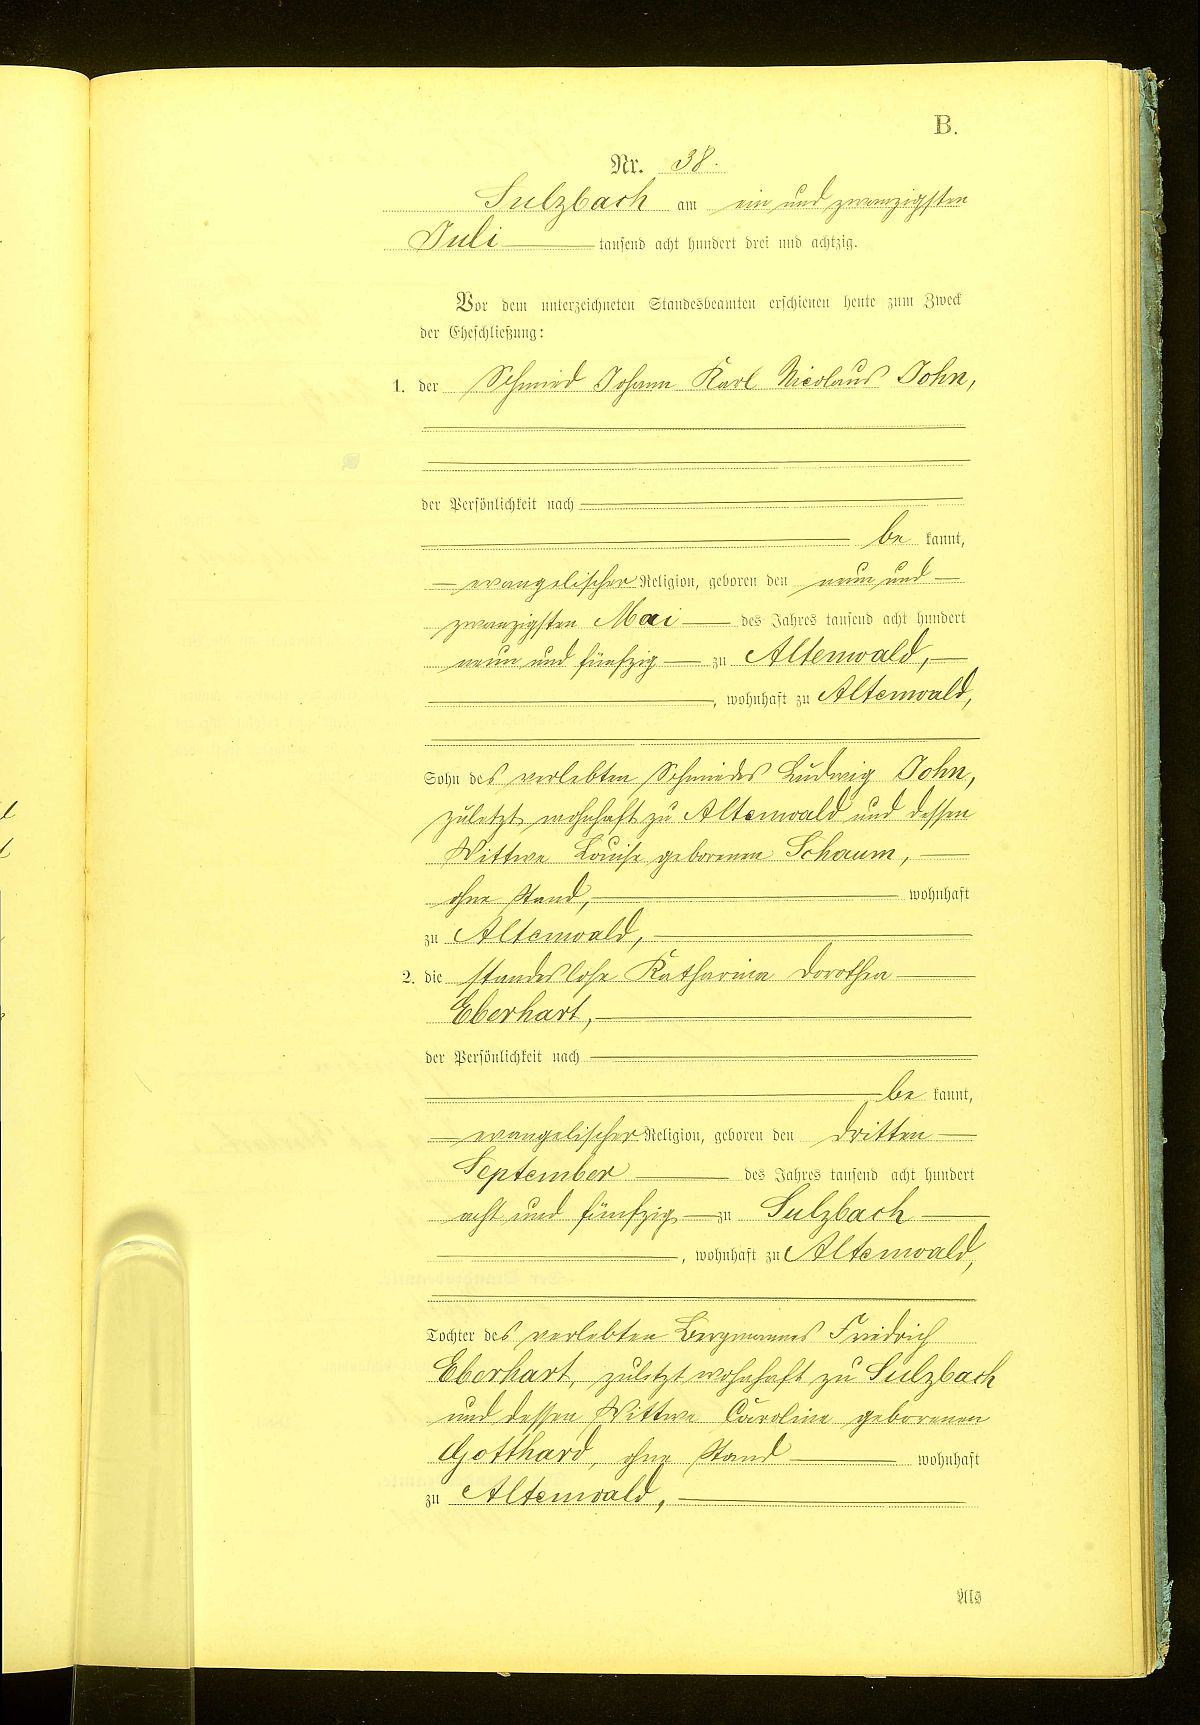 B.
Nr. 38.
Sulzbach am ein und zwanzigsten
Juli tausend acht hundert drei und achtzig.
Vor dem unterzeichneten Standesbeamten erschienen heute zum Zweck
der Eheschließung:
1. der Schmied Johann Karl Nicolaus John,
der Persönlichkeit nach
be kannt,
evangelischer Religion, geboren den neun und
zwanzigsten Mai des Jahres tausend acht hundert
neun und fünfzig zu Altenwald,
, wohnhaft zu Altenwald,
Sohn des verlebten Schmiedes Ludwig John,
zuletzt wohnhaft zu Altenwald und dessen
Wittwe Louise geborenen Schaum,
ohne Stand, wohnhaft
zu Altenwald,
2. die standeslose Katharina Dorothea
Eberhart,
der Persönlichkeit nach
be kannt,
evangelischer Religion, geboren den dritten
September des Jahres tausend acht hundert
acht und fünfzig zu Sulzbach
, wohnhaft zu Altenwald,
Tochter des verlebten Bergmannes Friedrich
Eberhart, zuletzt wohnhaft zu Sulzbach
und dessen Wittwe Caroline geborenen
Gotthard, ohne Stand wohnhaft
zu Altenwald,
Als